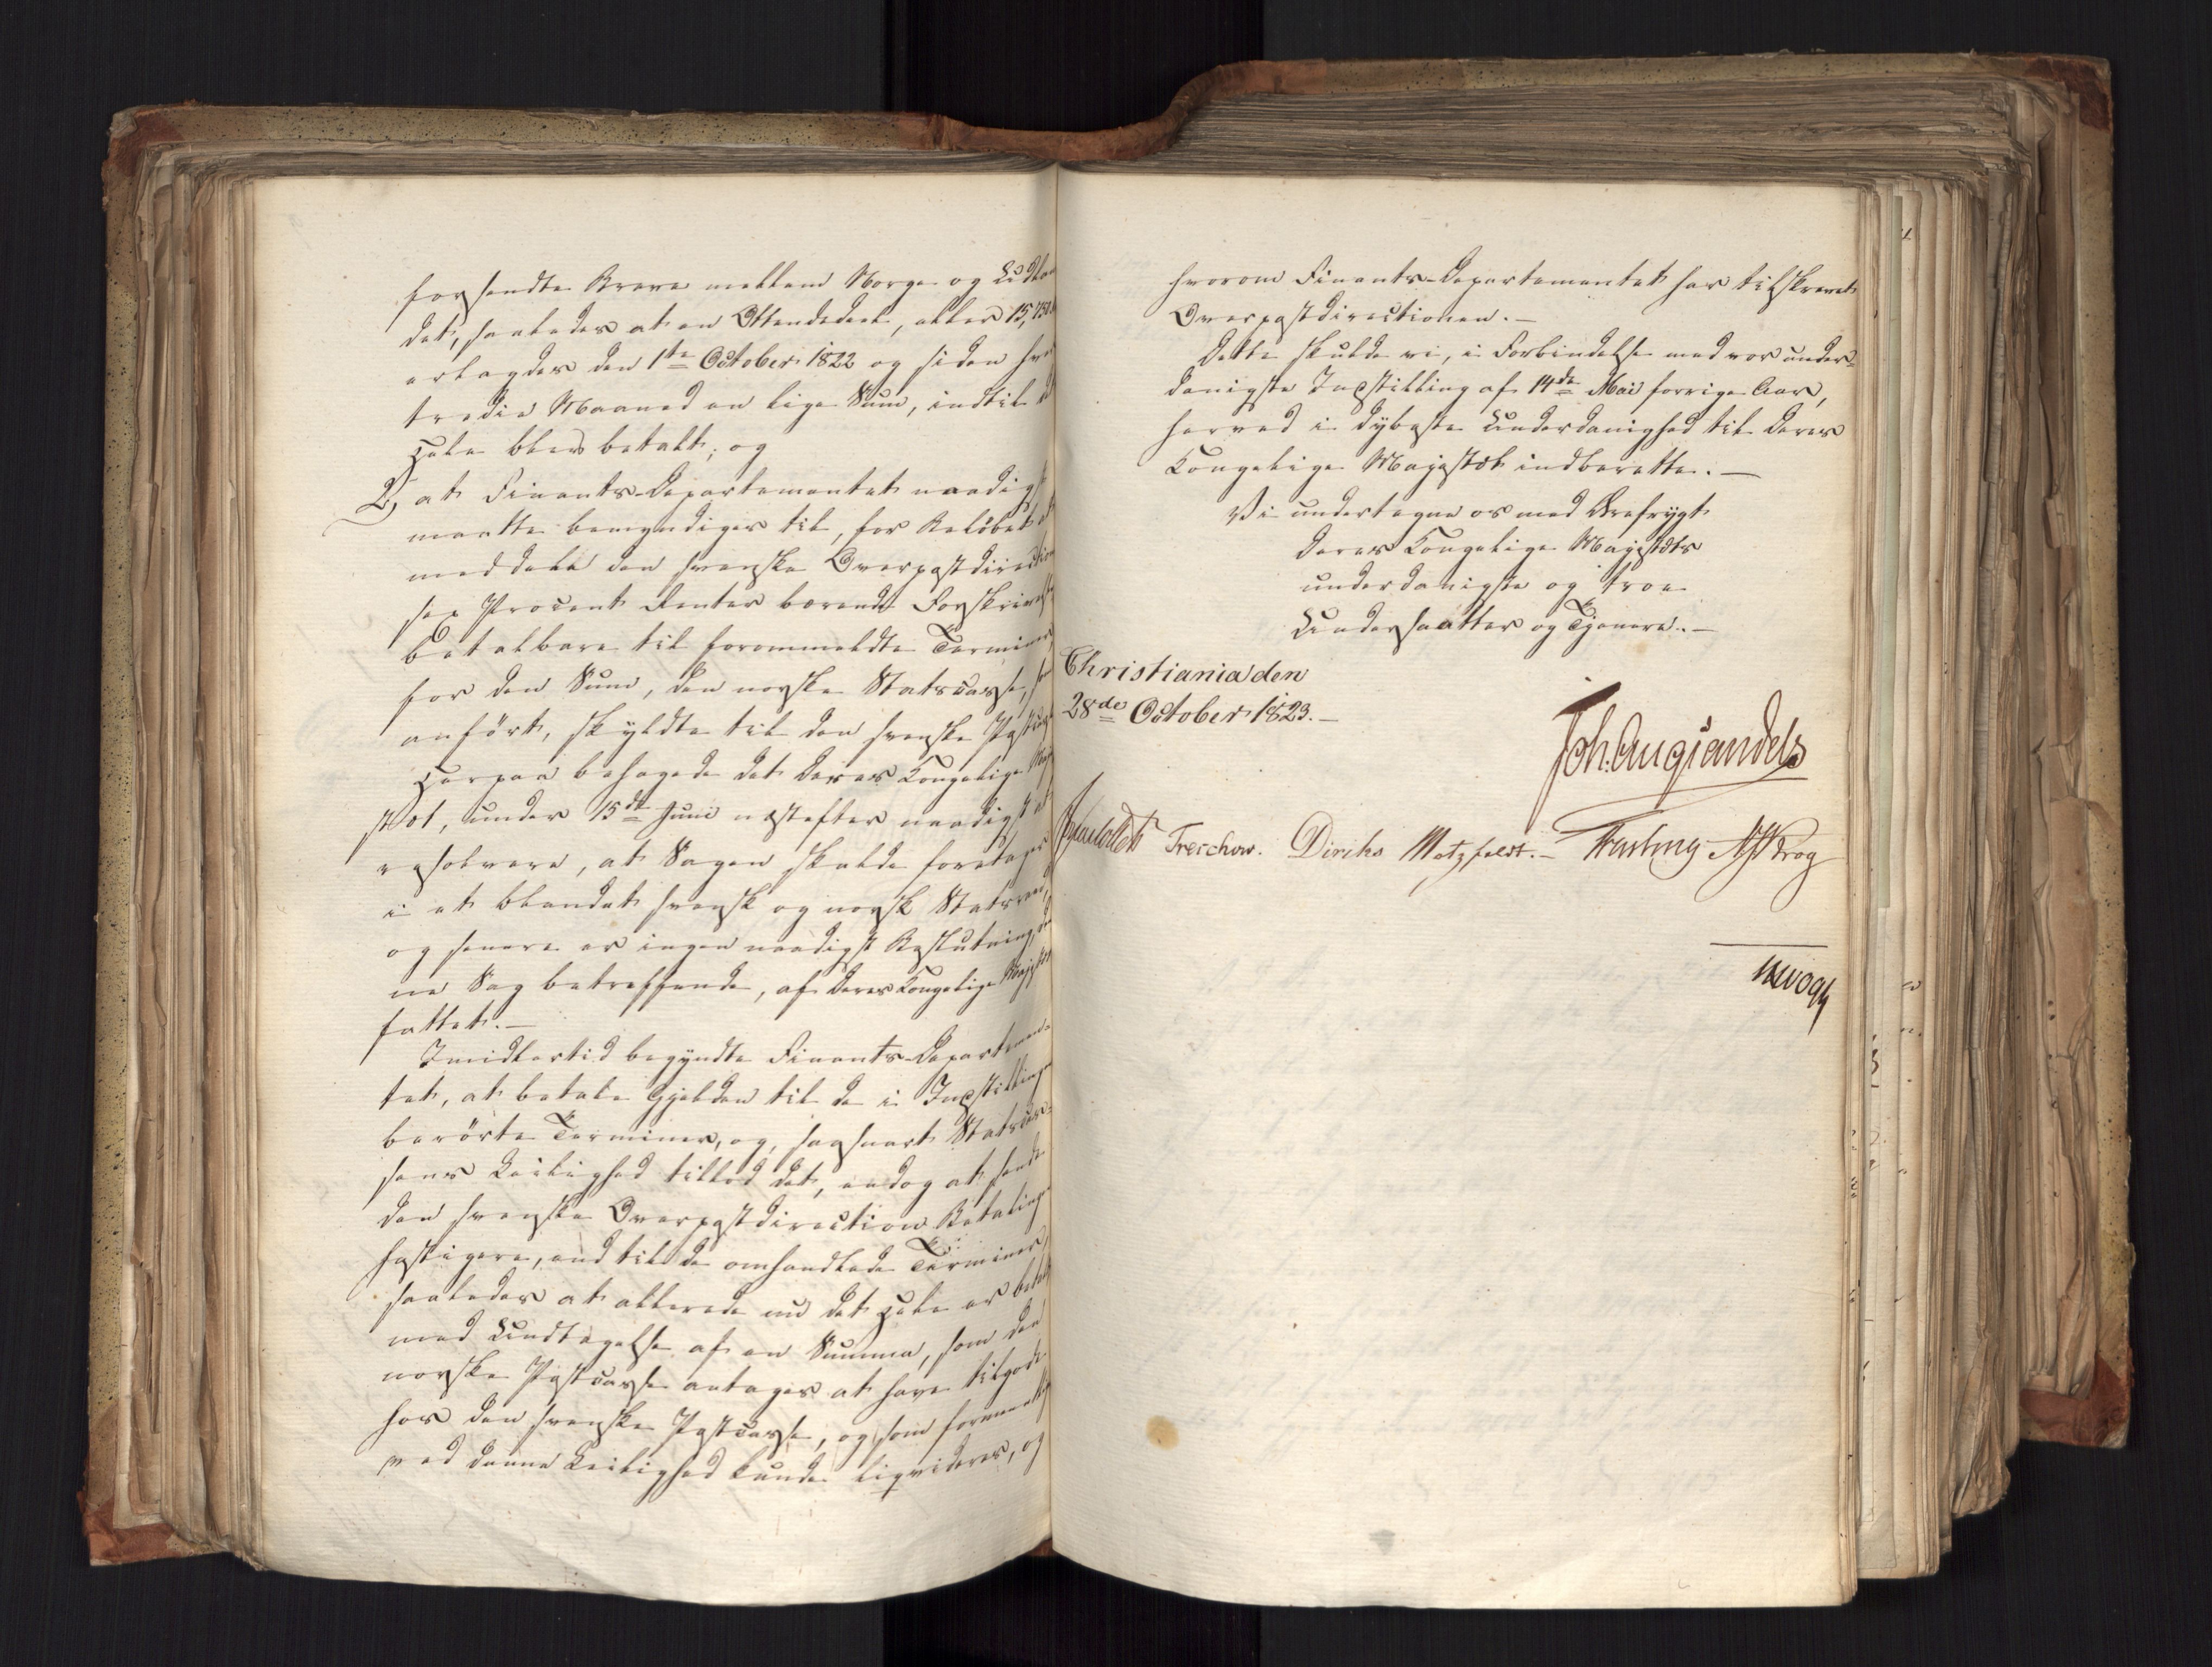 forsendte Breve mellem Norge og Udlan
det, saaledes at en Ottendedeel, eller 15,750
erlagdes den 1ste October 1822 og siden hver
tredie Maaned en lige Sum, indtil det
Hele blev betalt; og
2, at Finants-Departementet naadigst
maatte bemyndiges til, for Beløbet at
meddele den svenske Overpostdirection
sex Procent Renter bærende Forskrivelse
betalbare til forommeldte Terminer
for den Sum, den norske Statscasse, som
anført, skyldte til den svenske Postcasse
Herpaa behagede det Deres Kongelige Maje
stæt, under 15de Juni næstefter naadigst at
resolvere, at Sagen skulde foretages
i et blandet svensk og norsk Statsraad,
og senere er ingen naadigst Beslutning, den
ne Sag betreffende, af Deres Kongelige Majestæt
fattet.—
Imidlertid begyndte Finants-Departemen
tet, at betale Gjelden til de i Indstillingen
berørte Terminer, og, saasnart Statscas
sens Leilighed tillod det, endog at sende
den svenske Overpostdirection Betalingen
hastigere, end til de omhandlede Terminer,
saaledes at allerede nu det Hele er betalt
med Undtagelse af en Summa, som den
norske Postcasse antages at have tilgode
hos den svenske Postcasse, og som formeentlig
ved denne Leilighed kunde liqvideres, og
hvorom Finants-Departementet har tilskrevet
Overpostdirectionen.—
Dette skulde vi, i Forbindelse med vor under-
danigste Indstilling af 14de Mai forrige Aar,
herved i dybeste Underdanighed til Deres
Kongelige Majestæt indberette.—
Vi undertegne os med Ærefrygt
Deres Kongelige Majestæts
underdanigste og troe
Undersaatter og Tjenere.—
Christiania den
28de October 1823.—
Joh: Aug: Sandels
Treschow. Diriks Motzfeldt.— Fasting Krog